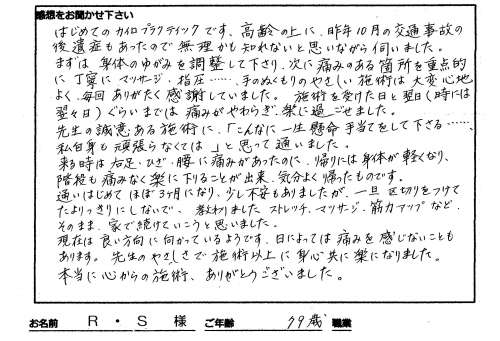 感想をお聞かせ下さい
はじめてのカイロプラクティックです、高齢の上に、昨年10月の交通事故の
後遺症もあったので無理かも知れないと思いながら伺いました。
まずは身体のゆがみを調整して下さり、次に痛みのある箇所を重点的
に丁寧にマッサージ・指圧……、手のぬくもりのやさしい施術は大変心地
よく、毎回ありがたく感謝していました。施術を受けた日と翌日(時には
翌々日)ぐらいまでは痛みがやわらぎ、楽に過ごせました。
先生の誠意ある施術に、「こんなに一生懸命手当てをして下さる……、
私自身も頑張らなくては」と思って通いました。
来る時は右足・ひざ・腰に痛みがあったのに、帰りには身体が軽くなり、
階段も痛みなく楽に下りることが出来、気分よく帰ったものです。
通いはじめてほぼ3ヶ月になり、少し不安もありましたが、一旦区切りをつけて
たよりっきりにしないで、教わりましたストレッチ、マッサージ、筋力アップなど、
そのまま、家で続けていこうと思いました。
現在は良い方向に向かっているようです、日によっては痛みを感じないことも
あります。先生のやさしさで施術以上に身心共に楽になりました。
本当に心からの施術、ありがとうございました。
お名前 R・S 様 ご年齢 79歳 職業